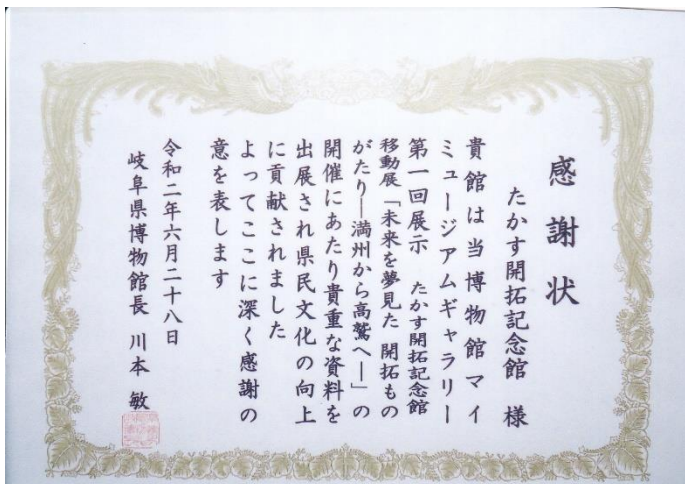 感謝状
たかす開拓記念館 様
貴館は当博物館マイ
ミュージアムギャラリー
第一回展示 たかす開拓記念館
移動展「未来を夢見た 開拓もの
がたり―満州から高鷲へ―」の
開催にあたり貴重な資料を
出展され県民文化の向上
に貢献されました
よってここに深く感謝の
意を表します
令和二年六月二十八日
岐阜県博物館長 川本 敏